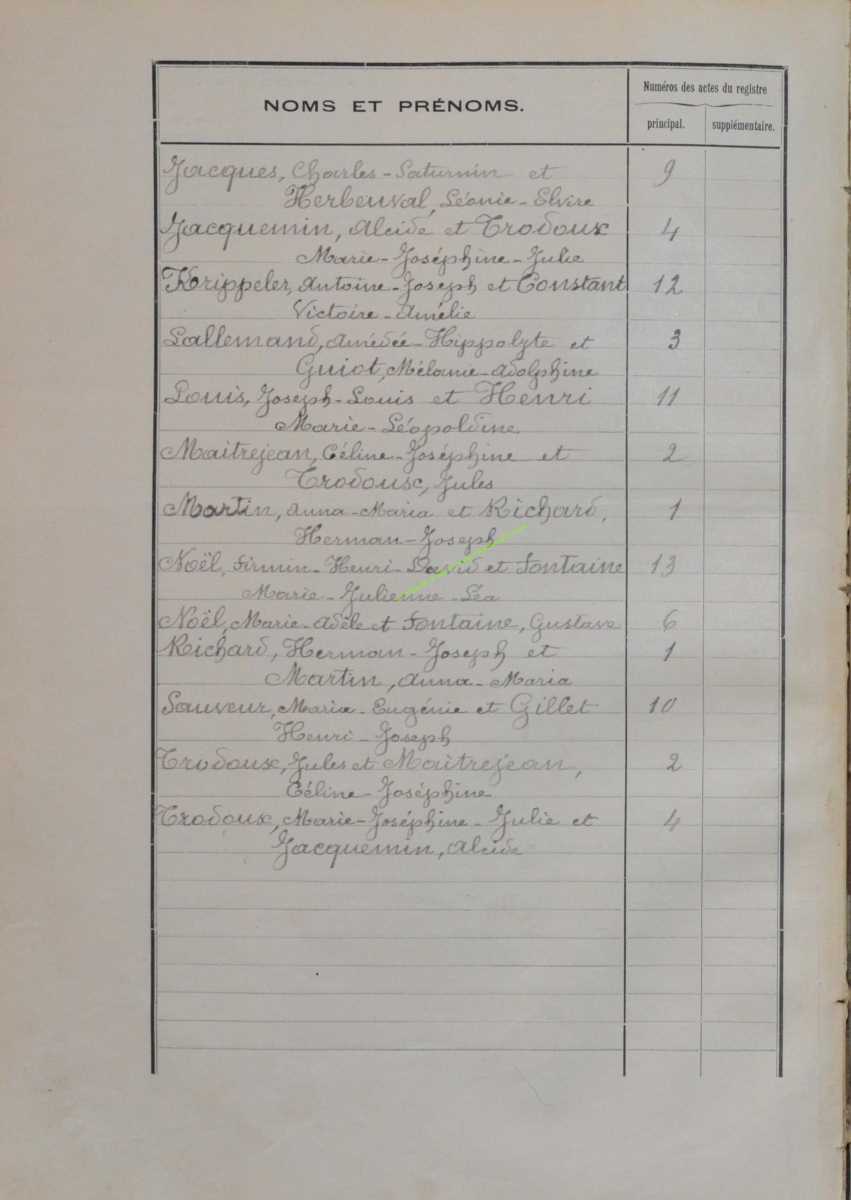 NOMS ET PRÉNOMS.
Numéros des actes du registre
principal. supplémentaire.
Jacques, Charles-Saturnin et 9
Herbeuval, Léonie-Elvire
Jacquemin, Alcide et Trodoux 4
Marie-Joséphine-Julie
Krippeler, Antoine-Joseph et Constant 12
Victoire-Amélie
Lallemand, Amédée-Hippolyte et 3
Guiot, Mélanie-Adolphine
Louis, Joseph-Louis et Henri 11
Marie-Léopoldine
Maitrejean, Céline-Joséphine et 2
Trodoux, Jules
Martin, Anna-Maria et Richard, 1
Herman-Joseph
Noël, Firmin-Henri-David et Fontaine 13
Marie-Julienne-Léa
Noël, Marie-Adèle et Fontaine, Gustave 6
Richard, Herman-Joseph et 1
Martin, Anna-Maria
Sauveur, Maria-Eugénie et Gillet 10
Henri-Joseph
Trodoux, Jules et Maitrejean, 2
Céline-Joséphine
Trodoux, Marie-Joséphine-Julie et 4
Jacquemin, Alcide